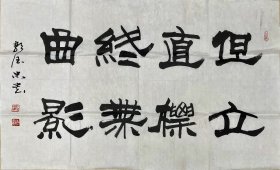 但立
直標
終無
曲影